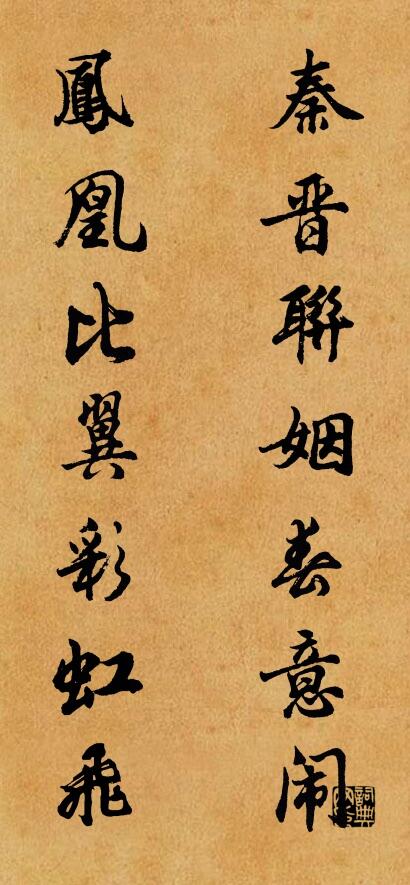 秦晋聯姻春意闹
鳳凰比翼彩虹飛